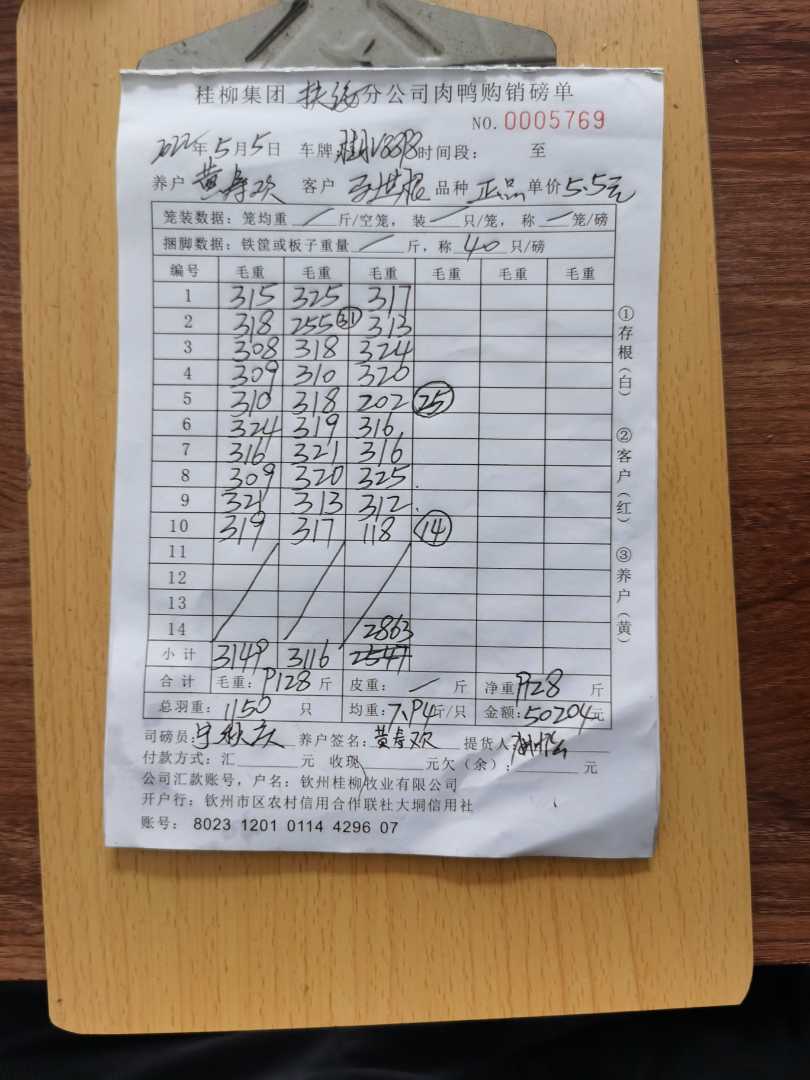 桂柳集团 扶绥 分公司肉鸭购销磅单
NO.0005769
2022年5月5日 车牌: 时间段: 至
养户 黄寿欢 客户 品种 正品 单价 5.5元
笼装数据: 笼均重 / 斤/空笼, 装 / 只/笼, 称 / 笼/磅
捆脚数据: 铁筐或板子重量 / 斤, 称 40 只/磅
编号 毛重 毛重 毛重 毛重 毛重 毛重
1 315 325 317
2 318 255 31 313
3 308 318 324
4 309 310 320
5 310 318 202 25
6 324 319 316
7 316 321 316
8 309 320 325
9 321 313 312
10 319 317 118 14
11
12
13
14 2863
小计 3149 3116 2547
合计 毛重: 9128 斤 皮重: / 斤 净重 9128 斤
总羽重: 1150 只 均重: 7.94 斤/只 金额: 50204 元
司磅员: 养户签名: 黄寿欢 提货人:
付款方式: 汇 元 收现 元欠(余): 元
公司汇款账号, 户名: 钦州桂柳牧业有限公司
开户行: 钦州市区农村信用合作联社大垌信用社
账号: 8023 1201 0114 4296 07
①存根(白) ②客户(红) ③养户(黄)